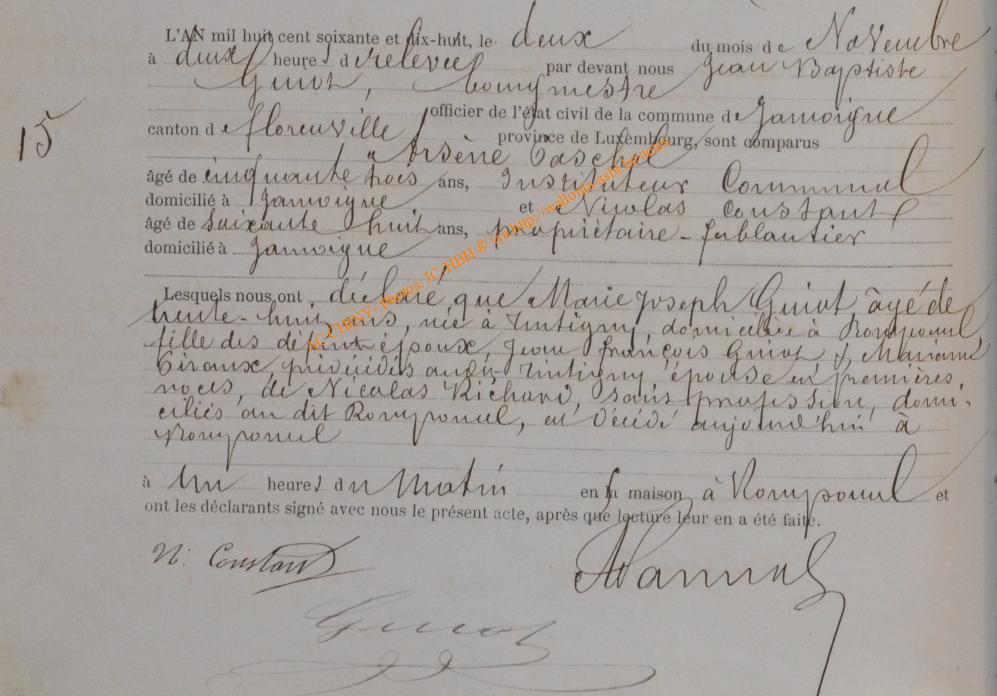 15
L'AN mil huit cent soixante et dix-huit, le deux du mois de Novembre
à deux heures de relevée par devant nous Jean Baptiste
Guiot, bourgmestre
officier de l'état civil de la commune de Jamoigne
canton de florenville province de Luxembourg, sont comparus
Arsène
âgé de cinquante trois ans, Instituteur Communal
domicilié à Jamoigne et Nicolas Constant
âgé de soixante huit ans, propriétaire - ferblantier
domicilié à Jamoigne
Lesquels nous ont déclaré que Marie Joseph Guiot, âgé de
trente-huit ans, née à Tintigny, domiciliée à Romponcel
fille des défunt époux, Jean françois Guiot & Marianne
Giraux, décédés audit Tintigny, épouse en premières
noces, de Nicolas Richard, sans profession, domi-
ciliés au dit Romponcel, est décédé aujourd'hui à
Romponcel
à un heures du Matin en sa maison à Romponcel et
ont les déclarants signé avec nous le présent acte, après que lecture leur en a été faite.
N. Constant
Guiot